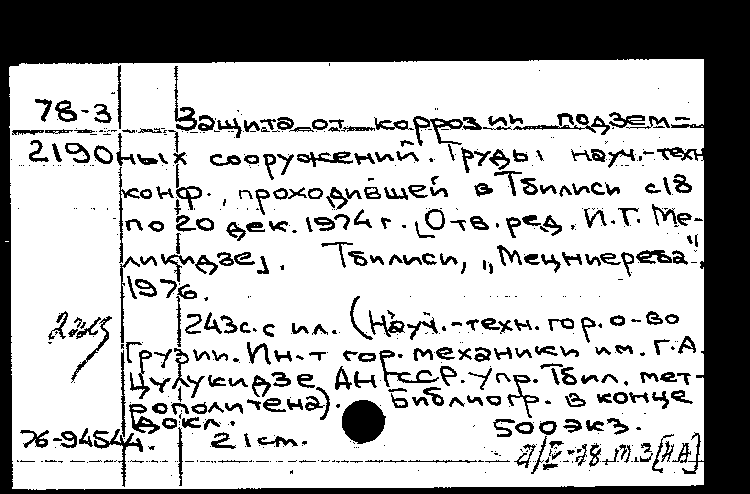 78-3 Защита от коррозии подзем-
2190 ных сооружений. Труды науч.-техн
конф., проходившей в Тбилиси с 18
по 20 дек. 1974 г. [Отв. ред. И.Г. Ме-
ликидзе]. Тбилиси, „Мецниереба",
1976.
243с. с ил. (Науч.-техн. гор. о-во
Грузии. Ин-т гор. механики им. Г.А.
Цулукидзе АН ГССР. Упр. Тбил. мет-
рополитена). Библиогр. в конце
докл.
76-94544. 21 см. 500 экз.
[НА]